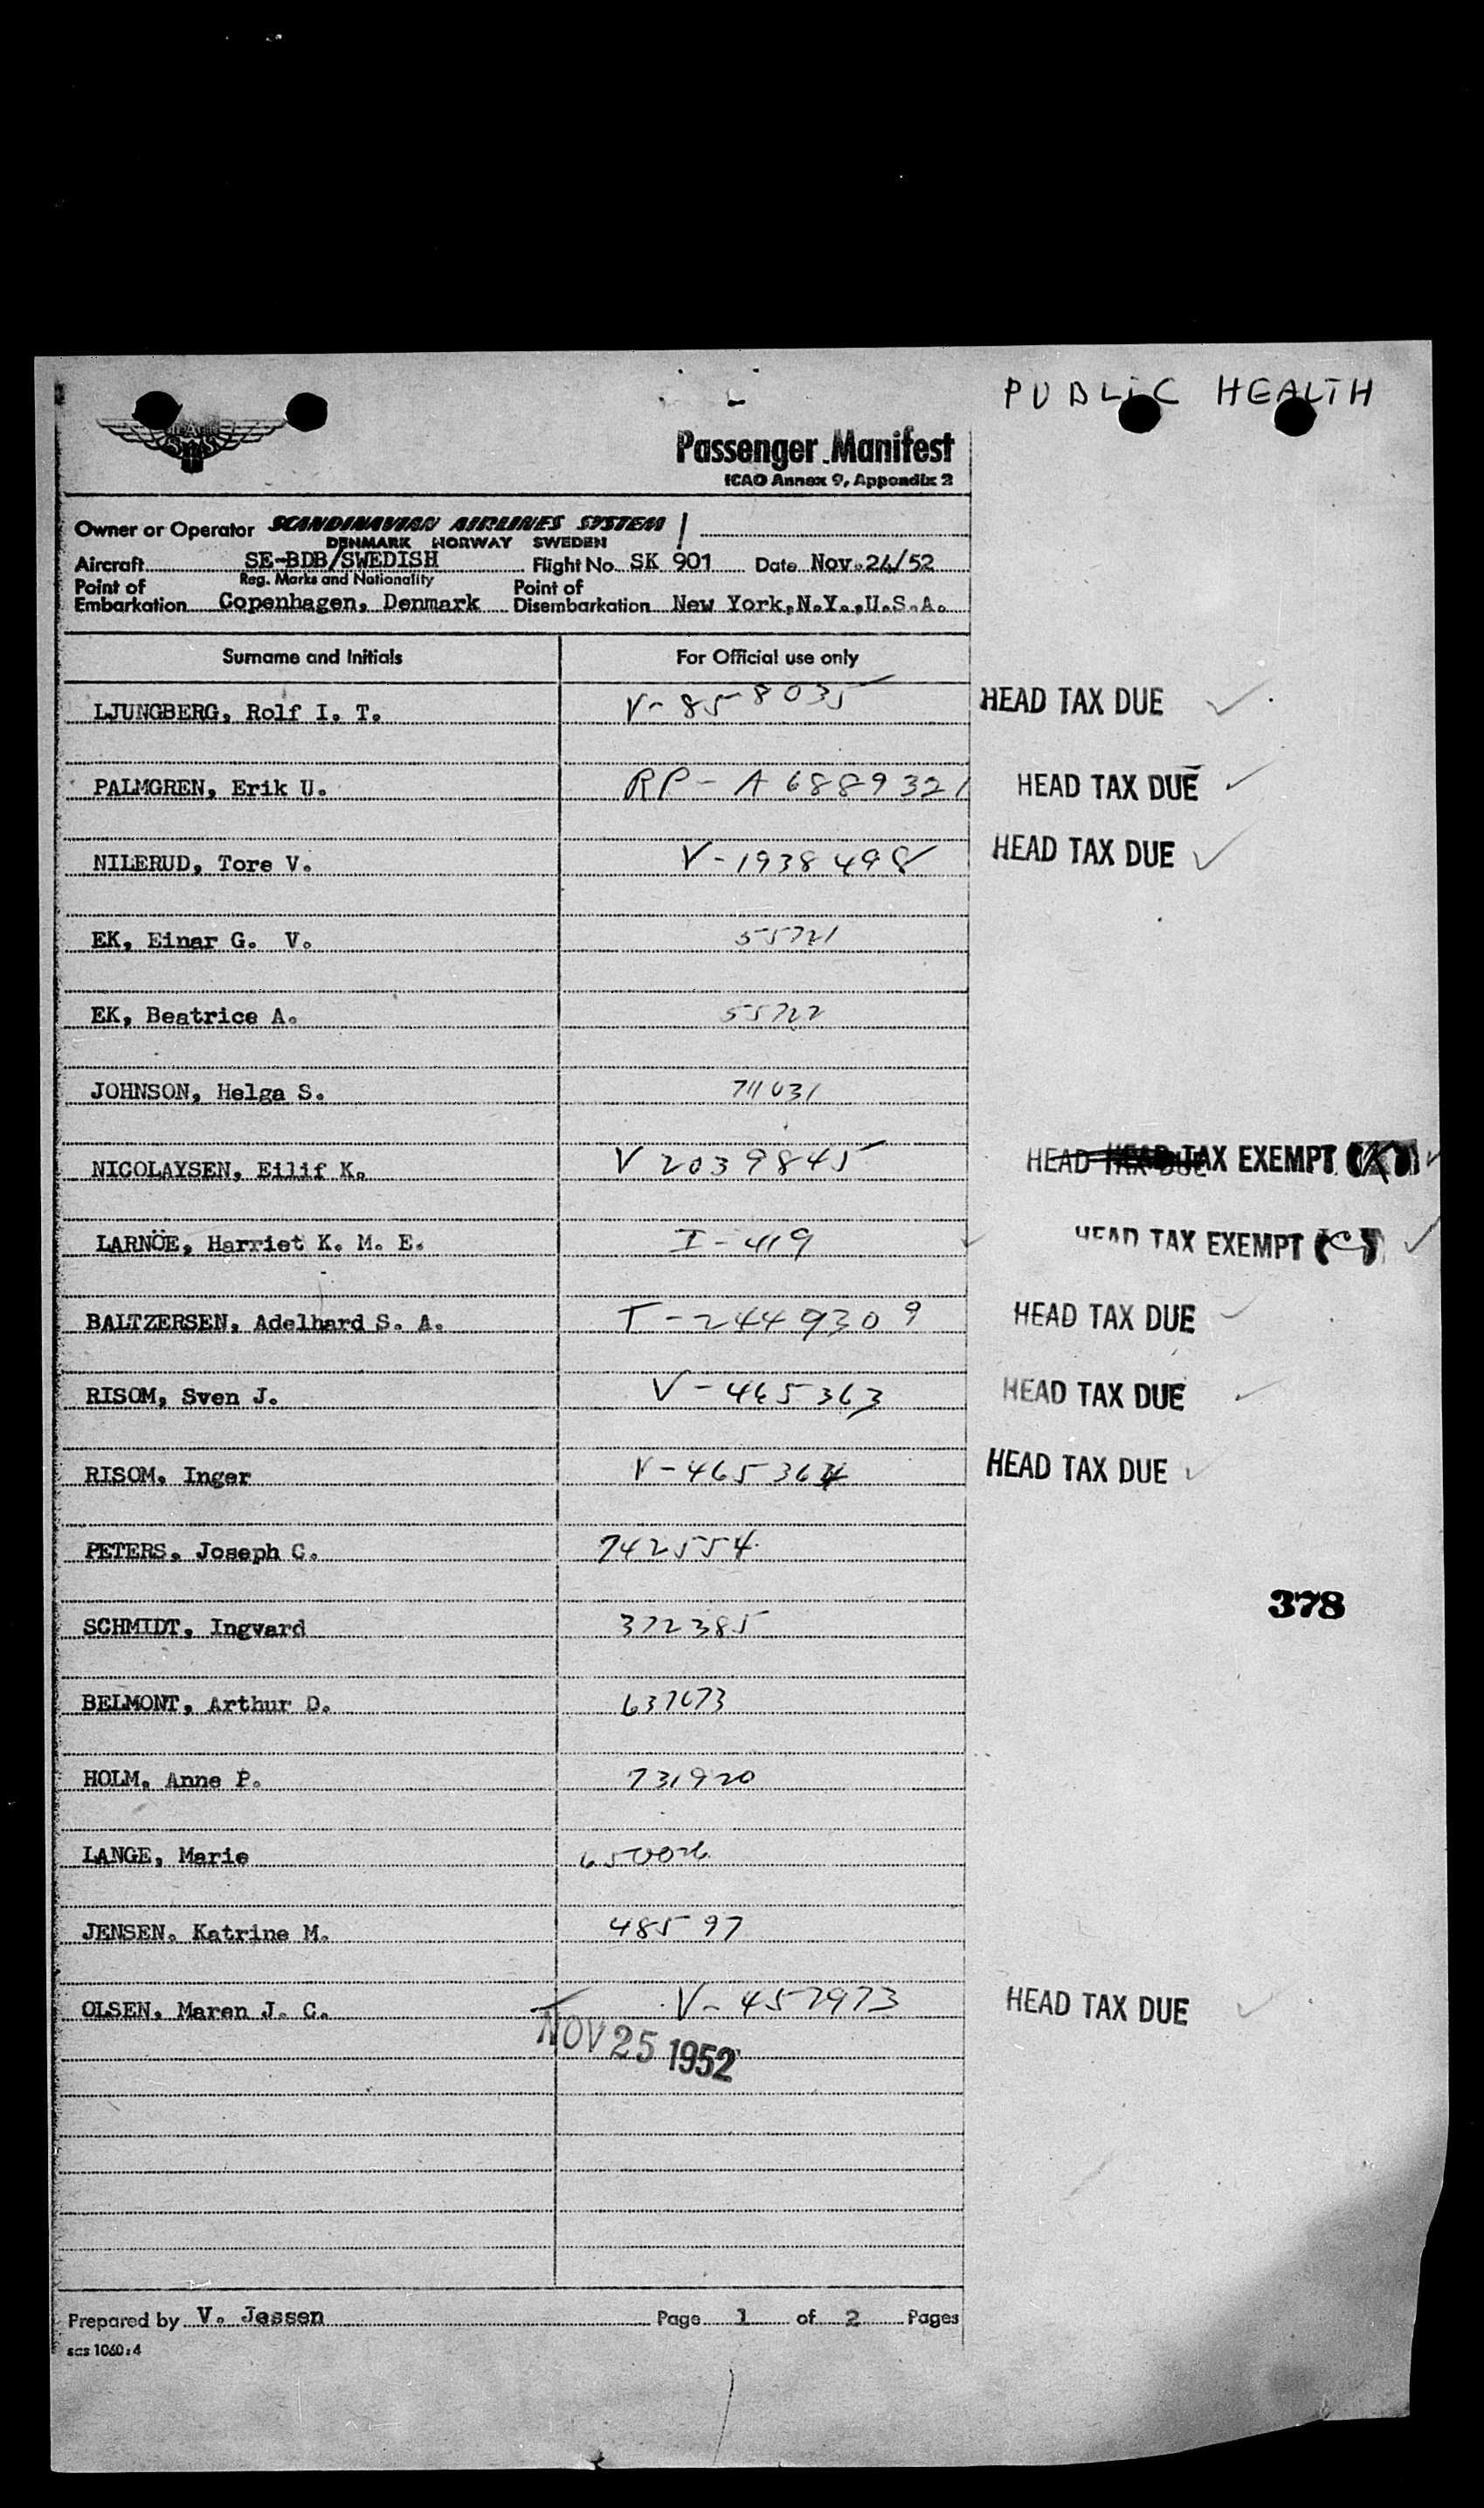 PUBLIC HEALTH
SAS
Passenger Manifest
ICAO Annex 9, Appendix 2
Owner or Operator SCANDINAVIAN AIRLINES SYSTEM
DENMARK NORWAY SWEDEN
Aircraft SE-BDB/SWEDISH Flight No. SK 901 Date Nov. 24/52
Reg. Marks and Nationality
Point of Embarkation Copenhagen, Denmark Point of Disembarkation New York,N.Y.,U.S.A.
Surname and Initials For Official use only
LJUNGBERG, Rolf I. T. V-858035 HEAD TAX DUE
PALMGREN, Erik U. RP-A6889321 HEAD TAX DUE
NILERUD, Tore V. V-1938498 HEAD TAX DUE
EK, Einar G. V. 55721
EK, Beatrice A. 55722
JOHNSON, Helga S. 711031
NICOLAYSEN, Eilif K. V2039845 HEAD TAX DUE HEAD TAX EXEMPT
LARNÖE, Harriet K. M. E. I-419 HEAD TAX EXEMPT (C)
BALTZERSEN, Adelhard S. A. T-2449309 HEAD TAX DUE
RISOM, Sven J. V-465363 HEAD TAX DUE
RISOM, Inger V-465364 HEAD TAX DUE
PETERS, Joseph C. 742554
378
SCHMIDT, Ingvard 372385
BELMONT, Arthur D. 637673
HOLM, Anne P. 731920
LANGE, Marie
JENSEN, Katrine M. 48597
OLSEN, Maren J. C. V-457973 HEAD TAX DUE
NOV 25 1952
Prepared by V. Jessen Page 1 of 2 Pages
scs 1060:4